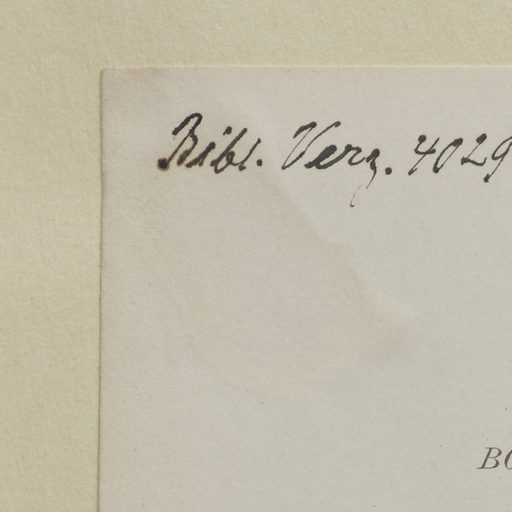 Bibl. Verz. 4029
BO